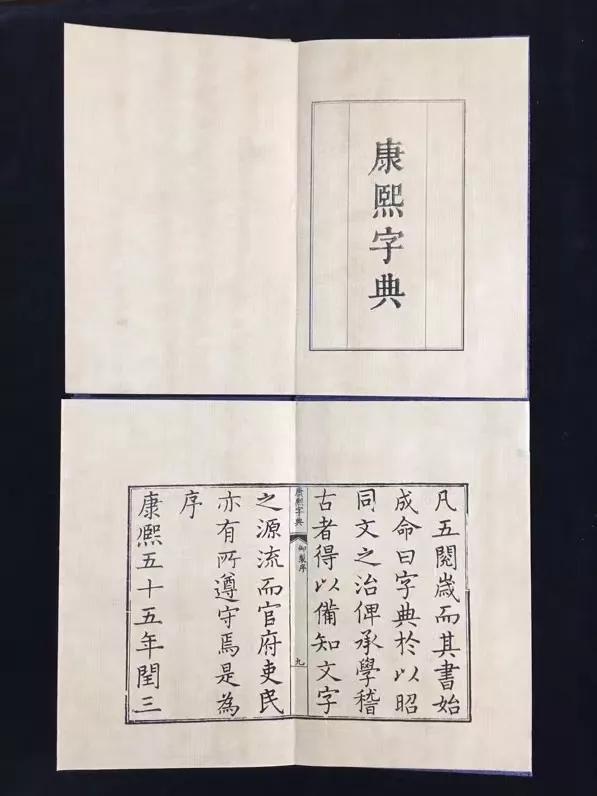 康熙字典
凡五閱歲而其書始
成命曰字典於以昭
同文之治俾承學稽
古者得以備知文字
康熙字典
御製序
九
之源流而官府吏民
亦有所遵守焉是為
序
康熙五十五年閏三